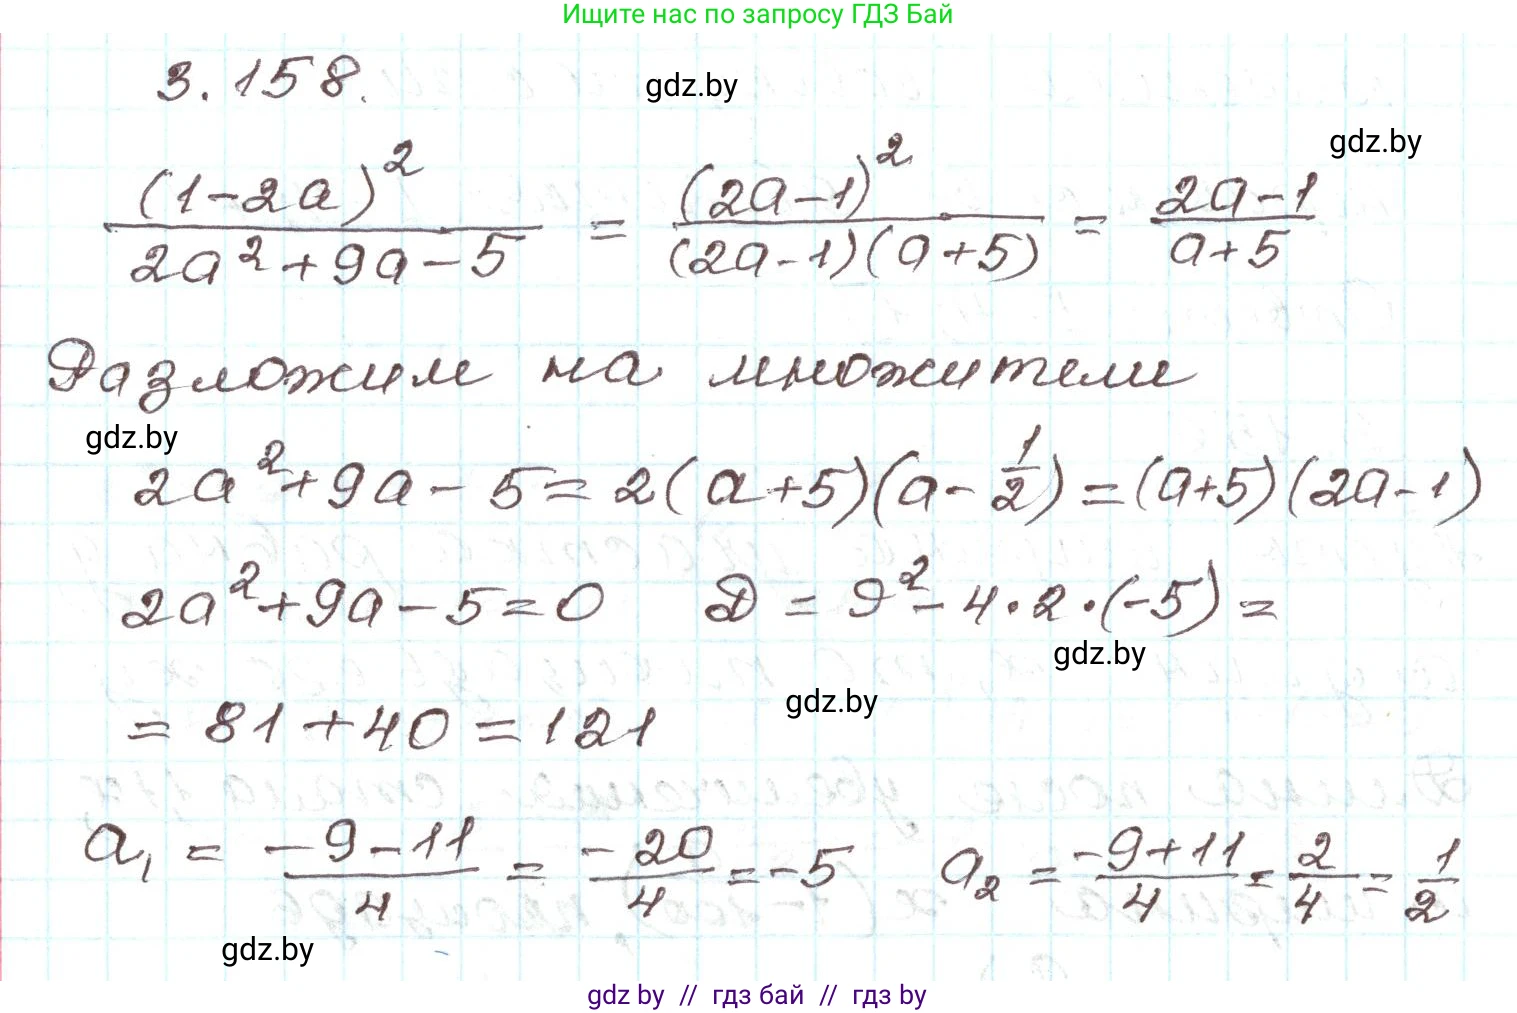 Ищите нас по запросу ГДЗ Бай
3.158.
gdz.by
gdz.by
(1-2a)² / (2a²+9a-5) = (2a-1)² / ((2a-1)(a+5)) = (2a-1) / (a+5)
Разложим на множители
gdz.by
2a²+9a-5=2(a+5)(a-1/2)=(a+5)(2a-1)
2a²+9a-5=0 D=9²-4·2·(-5)=
gdz.by
gdz.by
=81+40=121
a₁ = (-9-11)/4 = -20/4 = -5 a₂ = (-9+11)/4 = 2/4 = 1/2
gdz.by
gdz by // гдз бай // гдз by